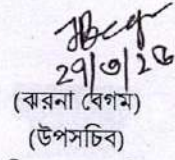 29/৩/২৬
(ঝরনা বেগম)
(উপসচিব)